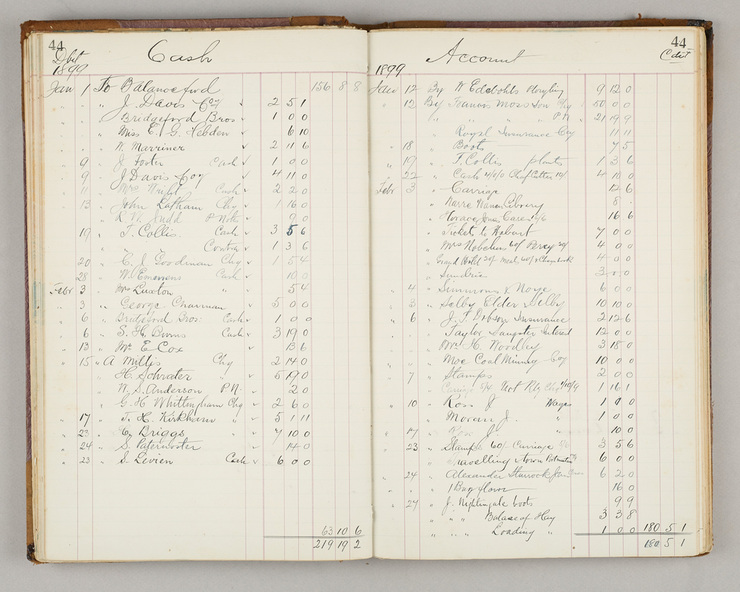 44
Cash
Dbt
1899
Jan 1 To Balance fwd 156 8 8
" J. Davis Coy 2 5 1
Bridgeford Bros 1 0 0
Miss E. G. Hebden 6 10
N. Marriner 2 11 6
9 J. Foster Cash 1 0 0
9 J Davis Coy 4 11 0
11 Cash 2 2 0
13 John Latham Chq 1 16 0
P Note 9 0
19 T. Collis Cash 3 5 6
Contra 1 3 6
20 E. J. Goodman Chq 1 5 4
28 W. Emmens Cash 10
Feb 3 Mrs Luxton 5 4
3 George Chairman 5 0 0
6 Bridgeford Bros Cash 1 0 0
6 S. H. Binns Cash 3 19 0
13 Mr E Cox 13 6
15 A Mills Chq 2 14 0
H. Schrater 5 19 0
N. S. Anderson P.N. 2 0
G. H. Whittingham Chq 2 6 0
17 T. H. Kirkham 5 1 11
23 C. Briggs 7 10 0
24 S. Paternoster 14 0
23 S. Levien Cash 6 0 0
63 10 6
219 19 2
44
Account
Cdt
1899
Jan 12 By 9 12 0
12 By Francis Moss Son 50 0 0
P N 21 19 9
Royal Insurance Coy 11 11
18 Boots 7 5
19 T. Collis 1 3 6
22 Cash 4 10 0
Feb 3 Carriage 12 6
8
16 6
Tickets to Hobart 7 0 0
4 0 0
4 0 0
Sundries 3 0 0
4 Simmons & Noye 6 0 0
5 Selby Elder 10 10 0
6 Insurance 2 12 6
Taylor Sangster Interest 12 0 0
Mrs H. Woodley 3 18 0
Moe Coal Mining Coy 10 0 0
7 Stamps 2 0 0
1 16 1
10 Ross J Wages 1 0 0
Moran J. 1 0 0
17 10 0
23 Stamps Carriage 3 5 6
Travelling 6 0 0
24 Alexander Sturrock 6 2 0
1 Bag flour 16 0
27 J. Nightingale boots 9 9
Balance of Hay 3 3 8
Loading 1 0 0 180 5 1
180 5 1